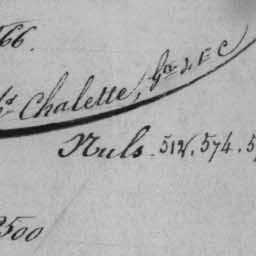 66.
Chalette,
Nuls. 512. 574. 5
2500